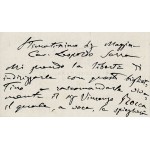 Cav. Leopoldo Serra
Mi prendo la libertà di
indirizzarle con questo biglet-
tino e raccomandarle viva-
mente il sig Vincenzo
il quale, a voce, le spiegherà